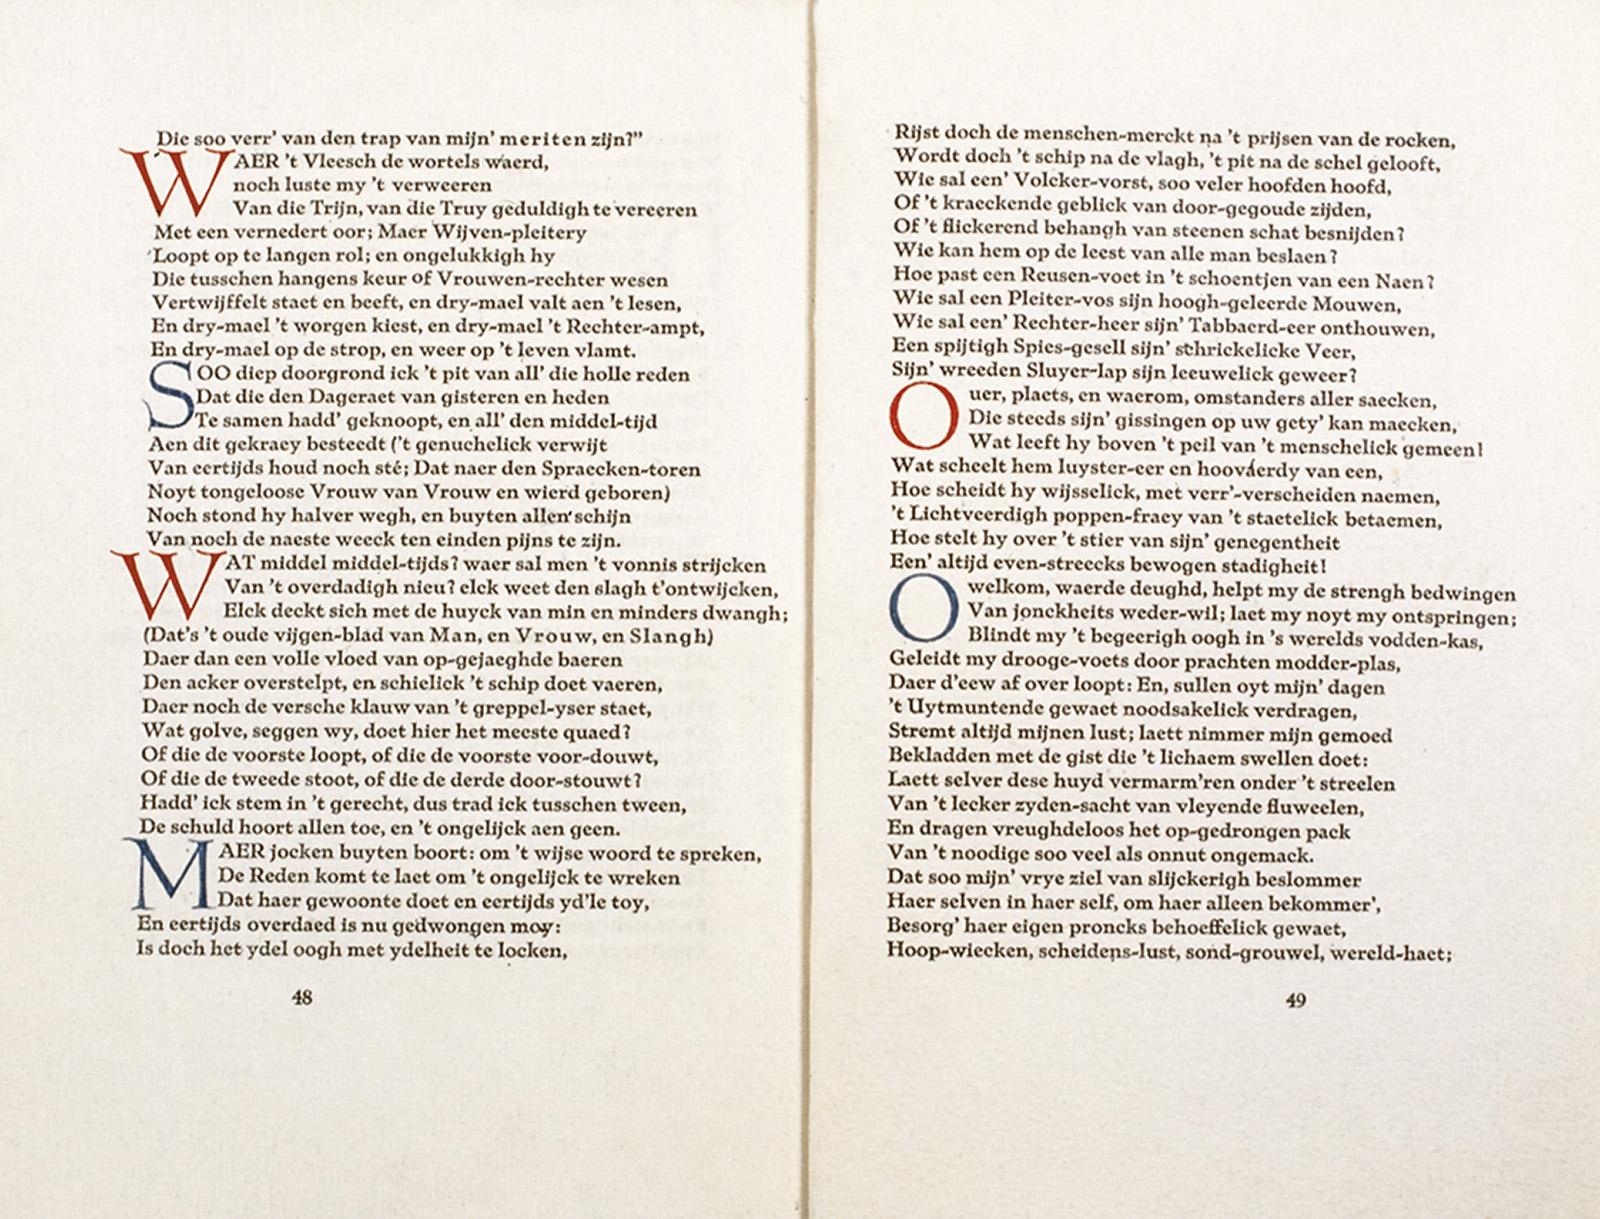 Die soo verr' van den trap van mijn' meriten zijn?"
WAER 't Vleesch de wortels waerd,
noch luste my 't verweeren
Van die Trijn, van die Truy geduldigh te vereeren
Met een vernedert oor; Maer Wijven-pleitery
Loopt op te langen rol; en ongelukkigh hy
Die tusschen hangens keur of Vrouwen-rechter wesen
Vertwijffelt staet en beeft, en dry-mael valt aen 't lesen,
En dry-mael 't worgen kiest, en dry-mael 't Rechter-ampt,
En dry-mael op de strop, en weer op 't leven vlamt.
SOO diep doorgrond ick 't pit van all' die holle reden
Dat die den Dageraet van gisteren en heden
Te samen hadd' geknoopt, en all' den middel-tijd
Aen dit gekraey besteedt ('t genuchelick verwijt
Van eertijds houd noch sté; Dat naer den Spraecken-toren
Noyt tongeloose Vrouw van Vrouw en wierd geboren)
Noch stond hy halver wegh, en buyten allen schijn
Van noch de naeste weeck ten einden pijns te zijn.
WAT middel middel-tijds? waer sal men 't vonnis strijcken
Van 't overdadigh nieu? elck weet den slagh t'ontwijcken,
Elck deckt sich met de huyck van min en minders dwangh;
(Dat's 't oude vijgen-blad van Man, en Vrouw, en Slangh)
Daer dan een volle vloed van op-gejaeghde baeren
Den acker overstelpt, en schielick 't schip doet vaeren,
Daer noch de versche klauw van 't greppel-yser staet,
Wat golve, seggen wy, doet hier het meeste quaed?
Of die de voorste loopt, of die de voorste voor-douwt,
Of die de tweede stoot, of die de derde door-stouwt?
Hadd' ick stem in 't gerecht, dus trad ick tusschen tween,
De schuld hoort allen toe, en 't ongelijck aen geen.
MAER jocken buyten boort: om 't wijse woord te spreken,
De Reden komt te laet om 't ongelijck te wreken
Dat haer gewoonte doet en eertijds yd'le toy,
En eertijds overdaed is nu gedwongen moy:
Is doch het ydel oogh met ydelheit te locken,
48
Rijst doch de menschen-merckt na 't prijsen van de rocken,
Wordt doch 't schip na de vlagh, 't pit na de schel gelooft,
Wie sal een' Volcker-vorst, soo veler hoofden hoofd,
Of 't kraeckende geblick van door-gegoude zijden,
Of 't flickerend behangh van steenen schat besnijden?
Wie kan hem op de leest van alle man beslaen?
Hoe past een Reusen-voet in 't schoentjen van een Naen?
Wie sal een Pleiter-vos sijn hoogh-geleerde Mouwen,
Wie sal een' Rechter-heer sijn' Tabbaerd-eer onthouwen,
Een spijtigh Spies-gesell sijn' schrickelicke Veer,
Sijn' wreeden Sluyer-lap sijn leeuwelick geweer?
Ouer, plaets, en waerom, omstanders aller saecken,
Die steeds sijn' gissingen op uw gety' kan maecken,
Wat leeft hy boven 't peil van 't menschelick gemeen!
Wat scheelt hem luyster-eer en hoovaerdy van een,
Hoe scheidt hy wijsselick, met verr'-verscheiden naemen,
't Lichtveerdigh poppen-fraey van 't staetelick betaemen,
Hoe stelt hy over 't stier van sijn' genegentheit
Een' altijd even-streecks bewogen stadigheit!
O welkom, waerde deughd, helpt my de strengh bedwingen
Van jonckheits weder-wil; laet my noyt my ontspringen;
Blindt my 't begeerigh oogh in 's werelds vodden-kas,
Geleidt my drooge-voets door prachten modder-plas,
Daer d'eew af over loopt: En, sullen oyt mijn' dagen
't Uytmuntende gewaet noodsakelick verdragen,
Stremt altijd mijnen lust; laett nimmer mijn gemoed
Bekladden met de gist die 't lichaem swellen doet:
Laett selver dese huyd vermarm'ren onder 't streelen
Van 't lecker zyden-sacht van vleyende fluweelen,
En dragen vreughdeloos het op-gedrongen pack
Van 't noodige soo veel als onnut ongemack.
Dat soo mijn' vrye ziel van slijckerigh beslommer
Haer selven in haer self, om haer alleen bekommer',
Besorg' haer eigen proncks behoeffelick gewaet,
Hoop-wiecken, scheidens-lust, sond-grouwel, wereld-haet;
49